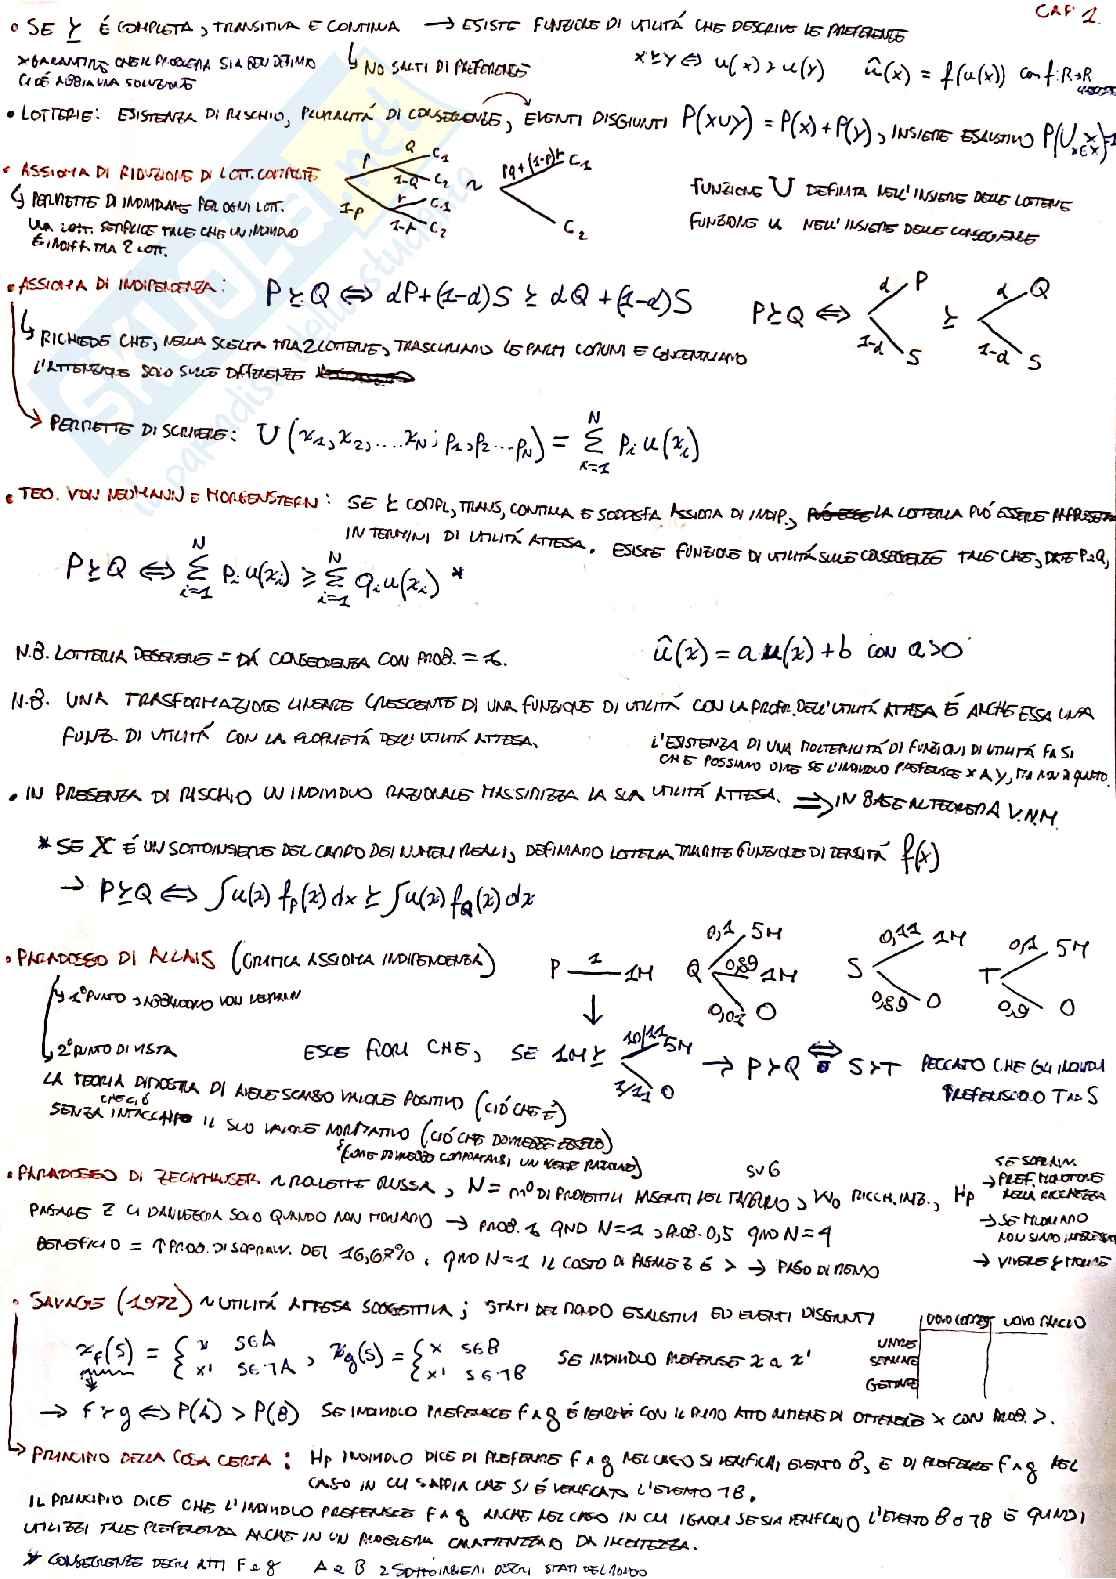 CAP 1.
• SE ≿ É COMPLETA, TRANSITIVA E CONTINUA → ESISTE FUNZIONE DI UTILITÁ CHE DESCRIVE LE PREFERENZE
* GARANTIRE CHE IL PROBLEMA SIA BEN DEFINITO ↳ NO SALTI DI PREFERENZE x ≿ y ⇔ u(x) ≥ u(y) û(x) = f(u(x)) con f: R→R
CIOÉ ABBIA UNA SOLUZIONE
• LOTTERIE: ESISTENZA DI RISCHIO, PLURALITÁ DI CONSEGUENZE, EVENTI DISGIUNTI P(x∪y) = P(x) + P(y), INSIEME ESAUSTIVO P(∪x)=1
x∈X
• ASSIOMA DI RIDUZIONE DI LOTT. COMPOSTE
P Q C1 1-Q C2 1-P r C.1 1-r C2 ~ PQ+(1-P)r C1 C2
↳ PERMETTE DI INDIVIDUARE PER OGNI LOTT.
UNA LOTT. SEMPLICE TALE CHE UN INDIVIDUO
É INDIFF. TRA 2 LOTT.
FUNZIONE U DEFINITA NELL'INSIEME DELLE LOTTERIE
FUNZIONE u NELL'INSIEME DELLE CONSEGUENZE
• ASSIOMA DI INDIPENDENZA: P ≿ Q ⇔ αP+(1-α)S ≿ αQ+(1-α)S P≿Q ⇔ α P 1-α S ≿ α Q 1-α S
↳ RICHIEDE CHE, NELLA SCELTA TRA 2 LOTTERIE, TRASCURIAMO LE PARTI COMUNI E CONCENTRIAMO
L'ATTENZIONE SOLO SULLE DIFFERENZE
→ PERMETTE DI SCRIVERE: U(x1, x2, .... xN; p1, p2 ... pN) = Σ pi u(xi)
N
i=1
• TEO. VON NEUMANN E MORGENSTERN: SE ≿ COMPL, TRANS, CONTINUA E SODDISFA ASSIOMA DI INDIP., LA LOTTERIA PUÓ ESSERE
IN TERMINI DI UTILITÁ ATTESA. ESISTE FUNZIONE DI UTILITÁ SULLE CONSEGUENZE TALE CHE, DATE P e Q,
P≿Q ⇔ Σ pi u(xi) ≥ Σ qi u(xi) *
N i=1 N i=1
N.B. LOTTERIA DEGENERE = DÁ CONSEGUENZA CON PROB. = 1. û(x) = a u(x) + b con a>0
N.B. UNA TRASFORMAZIONE LINEARE CRESCENTE DI UNA FUNZIONE DI UTILITÁ CON LA PROPR. DELL'UTILITÁ ATTESA É ANCHE ESSA UNA
FUNZ. DI UTILITÁ CON LA PROPRIETÁ DELL'UTILITÁ ATTESA.
L'ESISTENZA DI UNA MOLTEPLICITÁ DI FUNZIONI DI UTILITÁ FA SI
CHE POSSIAMO DIRE SE L'INDIVIDUO PREFERISCE X A Y, MA NON DI QUANTO
• IN PRESENZA DI RISCHIO UN INDIVIDUO RAZIONALE MASSIMIZZA LA SUA UTILITÁ ATTESA. ⇒ IN BASE AL TEOREMA V.N.M.
* SE X É UN SOTTOINSIEME DEL CAMPO DEI NUMERI REALI, DEFINIAMO LOTTERIA TRAMITE FUNZIONE DI DENSITÁ f(x)
→ P≿Q ⇔ ∫u(x) fP(x) dx ≿ ∫u(x) fQ(x) dx
• PARADOSSO DI ALLAIS (CRITICA ASSIOMA INDIPENDENZA) P 1 1M Q 0,1 5M 0,89 1M 0,01 0 S 0,11 1M 0,89 0 T 0,1 5M 0,9 0
↳ 1° PUNTO →
↳ 2° PUNTO DI VISTA
ESCE FUORI CHE, SE 1M ≿ 10/11 5M 1/11 0 → P≻Q ⇔ S≻T PECCATO CHE GLI INDIVIDUI
PREFERISCONO T A S
LA TEORIA DIMOSTRA DI AVERE SCARSO VALORE POSITIVO (CIÓ CHE É)
SENZA CHE CIÓ INTACCHI IL SUO VALORE NORMATIVO (CIÓ CHE DOVREBBE ESSERE)
(COME DOVREBBE COMPORTARSI UN ESSERE RAZIONALE)
• PARADOSSO DI ZECKHAUSER ~ ROLETTE RUSSA, N = n° DI PROIETTILI INSERITI NEL TAMBURO, W0 RICCH. INIZ., Hp
SU 6
SE SOPRAVV.
→ PREF. MONOTONE
NELLA RICCHEZZA
→ SE MORIAMO
NON SIAMO INTERESSATI
→ VIVERE ≻ MORIRE
PAGARE Z CI DANNEGGIA SOLO QUANDO NON MORIAMO → PROB. 1 QND N=1, PROB. 0,5 QND N=4
BENEFICIO = ↑ PROB. DI SOPRAVV. DEL 16,67%. QND N=1 IL COSTO DI PAGARE Z É > → PAGO DI MENO
• SAVAGE (1972) ~ UTILITÁ ATTESA SOGGETTIVA; STATI DEL MONDO ESAUSTIVI ED EVENTI DISGIUNTI
UOVO MARCIO
UNIRE
SEPARARE
GETTARE
xf(s) = { x s∈A x' s∈¬A , xg(s) = { x s∈B x' s∈¬B SE INDIVIDUO PREFERISCE x a x'
→ f≻g ⇔ P(A) > P(B) SE INDIVIDUO PREFERISCE f A g É PERCHÉ CON IL PRIMO ATTO RITIENE DI OTTENERE X CON PROB. >.
→ PRINCIPIO DELLA COSA CERTA: Hp INDIVIDUO DICE DI PREFERIRE f A g NEL CASO SI VERIFICHI EVENTO B, E DI PREFERIRE f A g NEL
CASO IN CUI SAPPIA CHE SI É VERIFICATO L'EVENTO ¬B.
IL PRINCIPIO DICE CHE L'INDIVIDUO PREFERISCE f A g ANCHE NEL CASO IN CUI IGNORI SE SIA VERIFICATO L'EVENTO B O ¬B E QUINDI
UTILIZZI TALE PREFERENZA ANCHE IN UN PROBLEMA CARATTERIZZATO DA INCERTEZZA.
* CONSEGUENZE DEGLI ATTI f e g A e B 2 SOTTOINSIEMI DEGLI STATI DEL MONDO